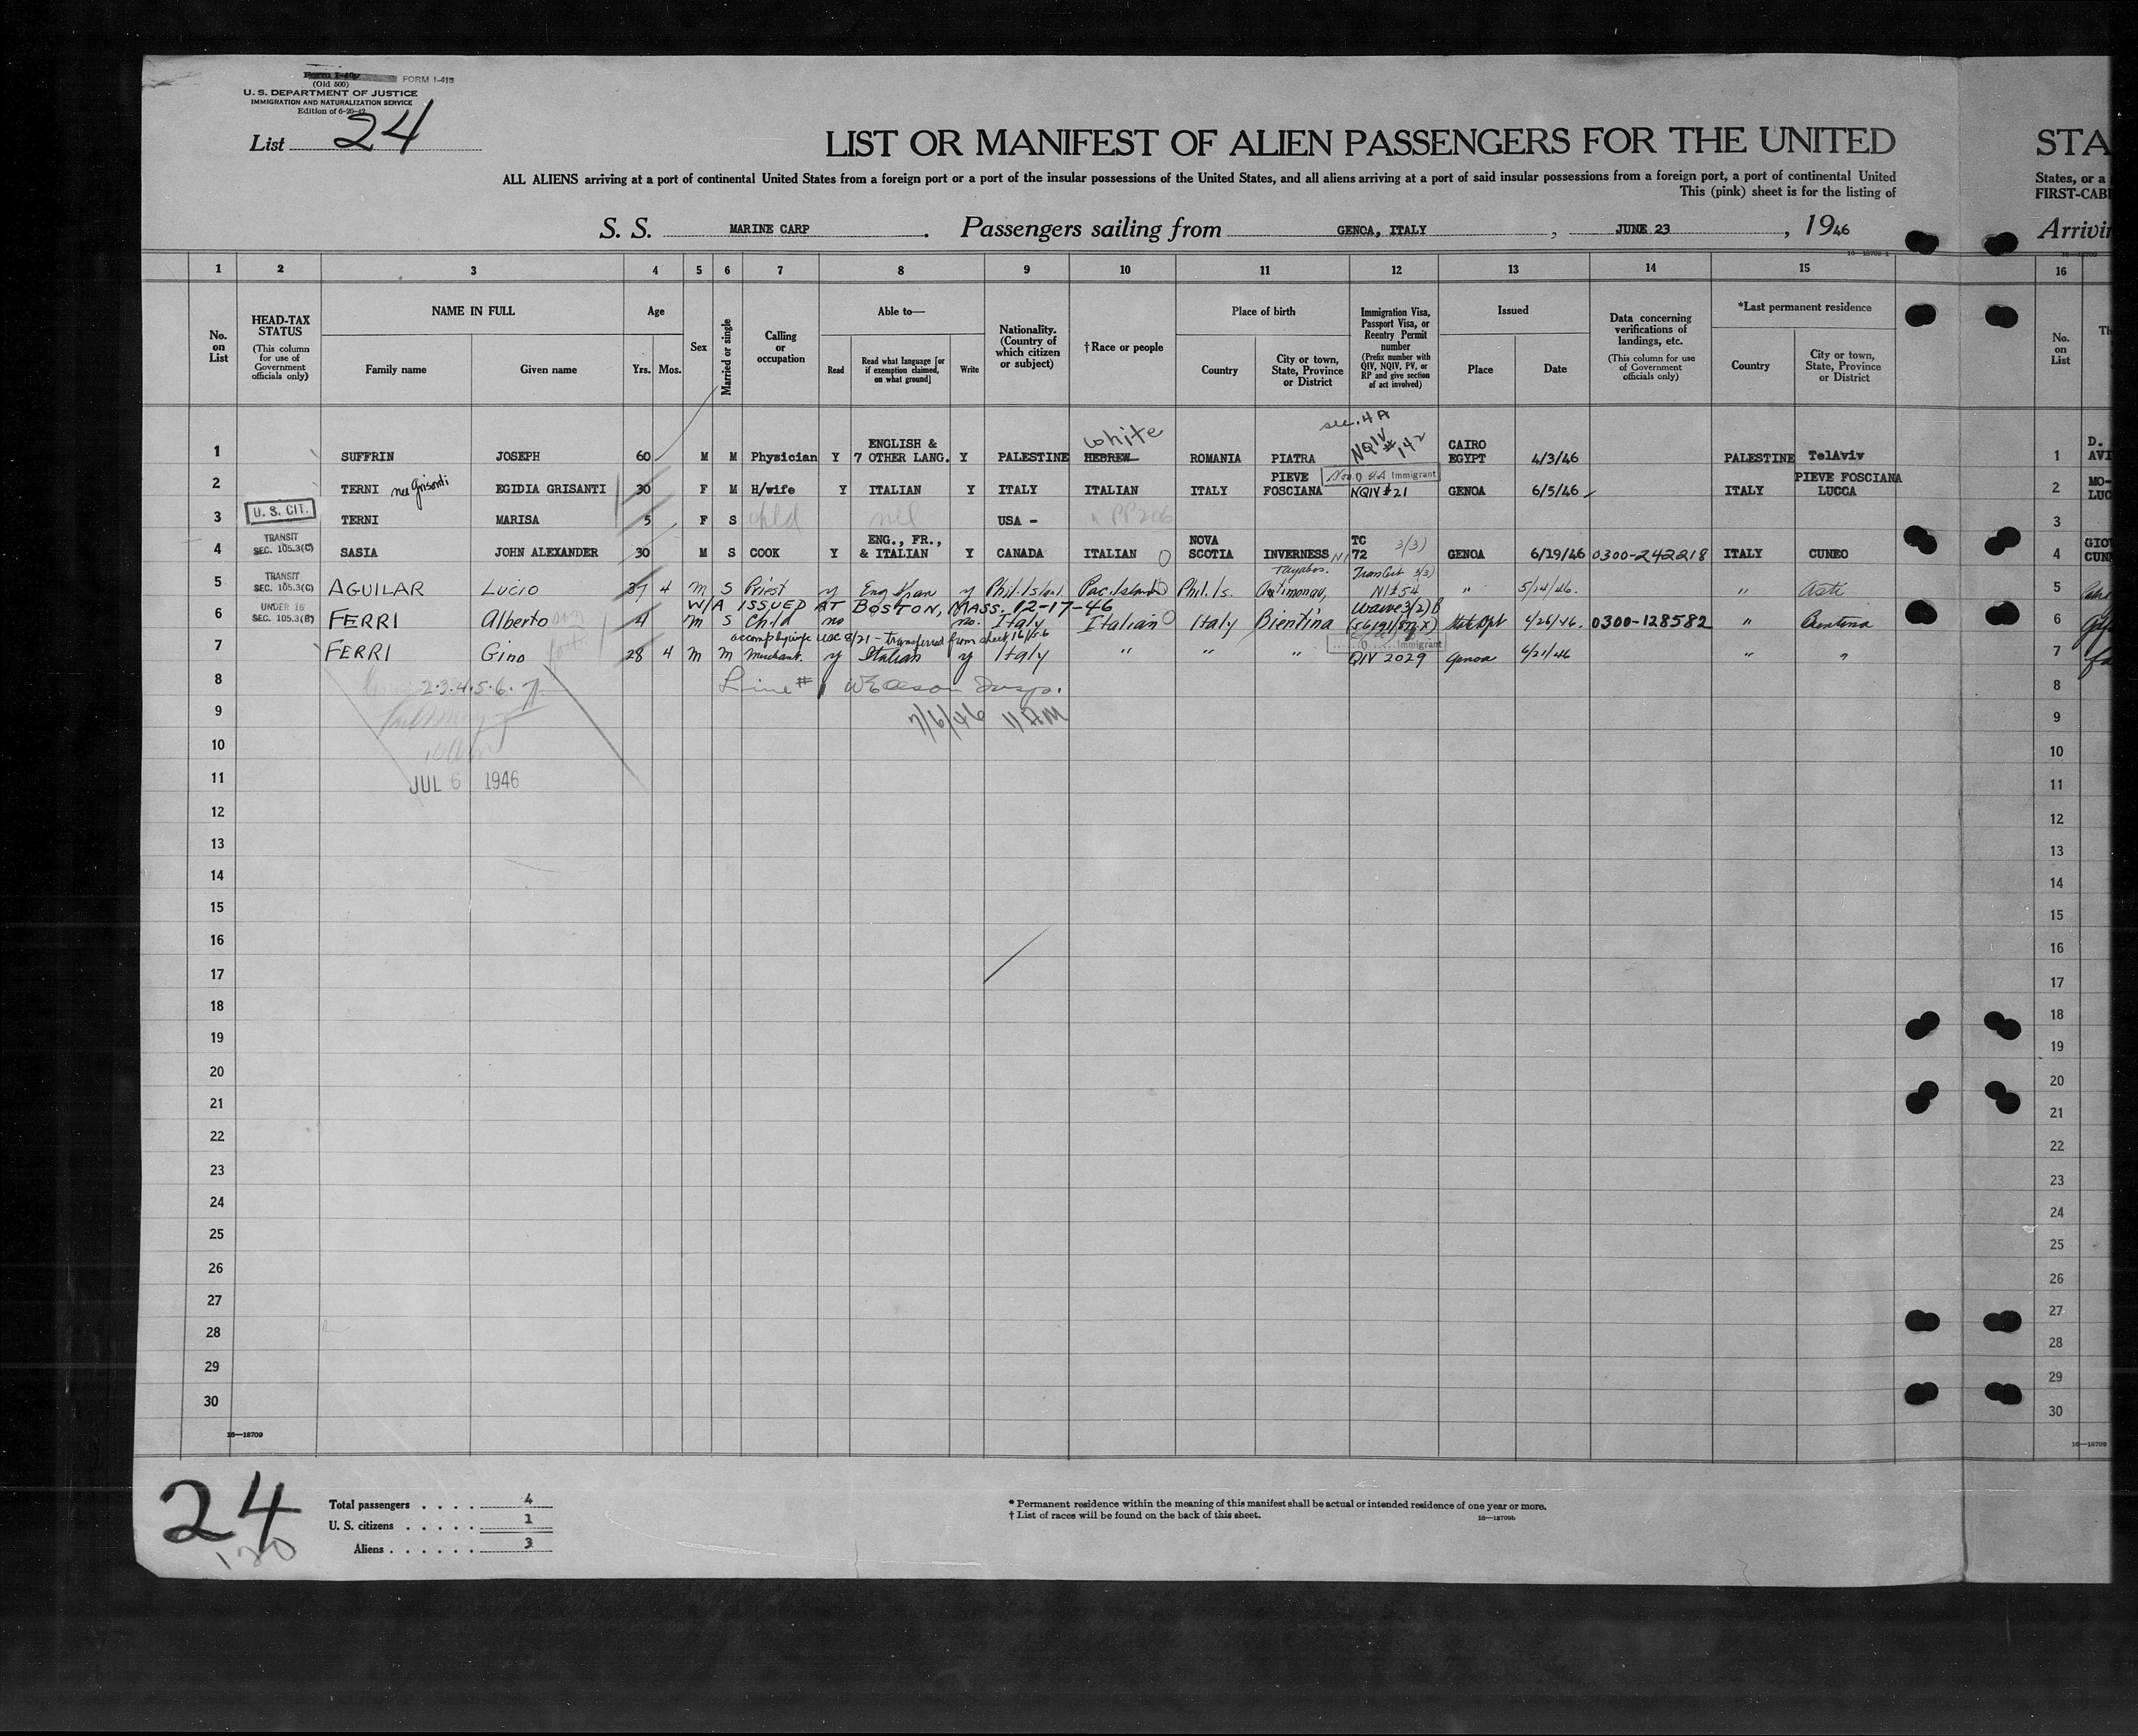 Form I-409 FORM I-415
(Old 500)
U. S. DEPARTMENT OF JUSTICE
IMMIGRATION AND NATURALIZATION SERVICE
Edition of 6-20-42
List 24
LIST OR MANIFEST OF ALIEN PASSENGERS FOR THE UNITED STA
ALL ALIENS arriving at a port of continental United States from a foreign port or a port of the insular possessions of the United States, and all aliens arriving at a port of said insular possessions from a foreign port, a port of continental United States, or a
This (pink) sheet is for the listing of FIRST-CABI
S. S. MARINE CARP. Passengers sailing from GENOA, ITALY, JUNE 23, 1946 Arrivin
16—18709-1 16—18709
1 2 3 4 5 6 7 8 9 10 11 12 13 14 15 16
No. on List
HEAD-TAX STATUS
(This column for use of Government officials only)
NAME IN FULL
Family name
Given name
Age
Yrs. Mos.
Sex
Married or single
Calling or occupation
Able to—
Read
Read what language [or if exemption claimed, on what ground]
Write
Nationality. (Country of which citizen or subject)
†Race or people
Place of birth
Country
City or town, State, Province or District
Immigration Visa, Passport Visa, or Reentry Permit number
(Prefix number with QIV, NQIV, PV, or RP and give section of act involved)
Issued
Place
Date
Data concerning verifications of landings, etc.
(This column for use of Government officials only)
*Last permanent residence
Country
City or town, State, Province or District
No. on List
Th
white sec. 4 A
1 SUFFRIN JOSEPH 60 M M Physician Y ENGLISH & 7 OTHER LANG. Y PALESTINE HEBREW ROMANIA PIATRA NQIV #142 CAIRO EGYPT 4/3/46 PALESTINE TelAviv 1 D. AVI
2 TERNI nee Grisanti EGIDIA GRISANTI 30 F M H/wife Y ITALIAN Y ITALY ITALIAN ITALY PIEVE FOSCIANA Immigrant NQIV #21 GENOA 6/5/46 ITALY PIEVE FOSCIANA LUCCA 2 MO- LUC
3 U. S. CIT. TERNI MARISA 5 F S child nil USA - PP206 3
4 TRANSIT SEC. 105.3(C) SASIA JOHN ALEXANDER 30 M S COOK Y ENG., FR., & ITALIAN Y CANADA ITALIAN NOVA SCOTIA INVERNESS TC 72 3/3) GENOA 6/19/46 0300-242218 ITALY CUNEO 4 GIOV CUN
5 TRANSIT SEC. 105.3(C) AGUILAR Lucio 37 4 m S Priest y Eng Span y Phil. Island. Pac. Island Phil. Is. Tayabas. Atimonan, Tran Cert 3/3) NI#54 " 5/14/46. " Asti 5
W/A ISSUED AT BOSTON, MASS. 12-17-46
6 UNDER 16 SEC. 105.3(B) FERRI Alberto 4 m S Child no no. Italy Italian Italy Bientina Waive 3/2)B State Dpt 4/26/46. 0300-128582 " Bientina 6
transferred from sheet 16
7 FERRI Gino 28 4 m m Merchant. y Italian y Italy " " " Immigrant QIV 2029 Genoa 6/21/46 " " 7
8 2.3.4.5.6.7 Line # 1 Insp. 8
9 7/6/46 11 AM 9
10 10
11 JUL 6 1946 11
12 12
13 13
14 14
15 15
16 16
17 17
18 18
19 19
20 20
21 21
22 22
23 23
24 24
25 25
26 26
27 27
28 28
29 29
30 30
16—18709 16—18709
24
120
Total passengers . . . . 4
U. S. citizens . . . . . 1
Aliens . . . . . . 3
* Permanent residence within the meaning of this manifest shall be actual or intended residence of one year or more.
† List of races will be found on the back of this sheet. 16—18709b